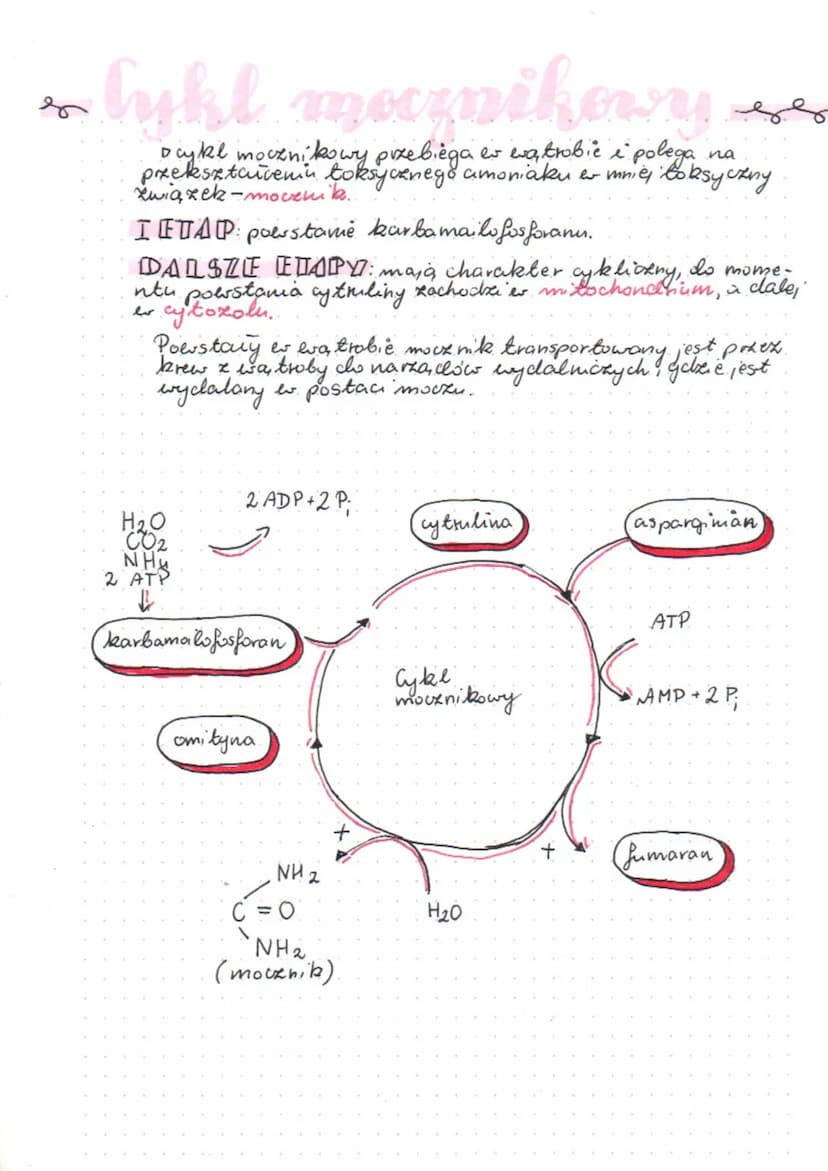 Cykl mocznikowy
cykl mocznikowy przebiega w wątrobie i polega na
przekształceniu toksycznego amoniaku w mniej toksyczny
związek - mocznik.
I ETAP: powstanie karbamailofosforanu.
DALSZE ETAPY: mają charakter cykliczny, do mome-
ntu powstania cytruliny zachodzi w mitochondrium, a dalej
w cytozolu.
Powstały w wątrobie mocznik transportowany jest przez
krew z wątroby do narządów wydalniczych, gdzie jest
wydalany w postaci moczu.
2 ADP + 2 Pi
H2O
CO2
NH4
2 ATP
cytrulina
asparginian
karbamailofosforan
ATP
Cykl
mocznikowy
AMP + 2 Pi
ornityna
+
+
fumaran
NH2
C = O
H2O
NH2
(mocznik)